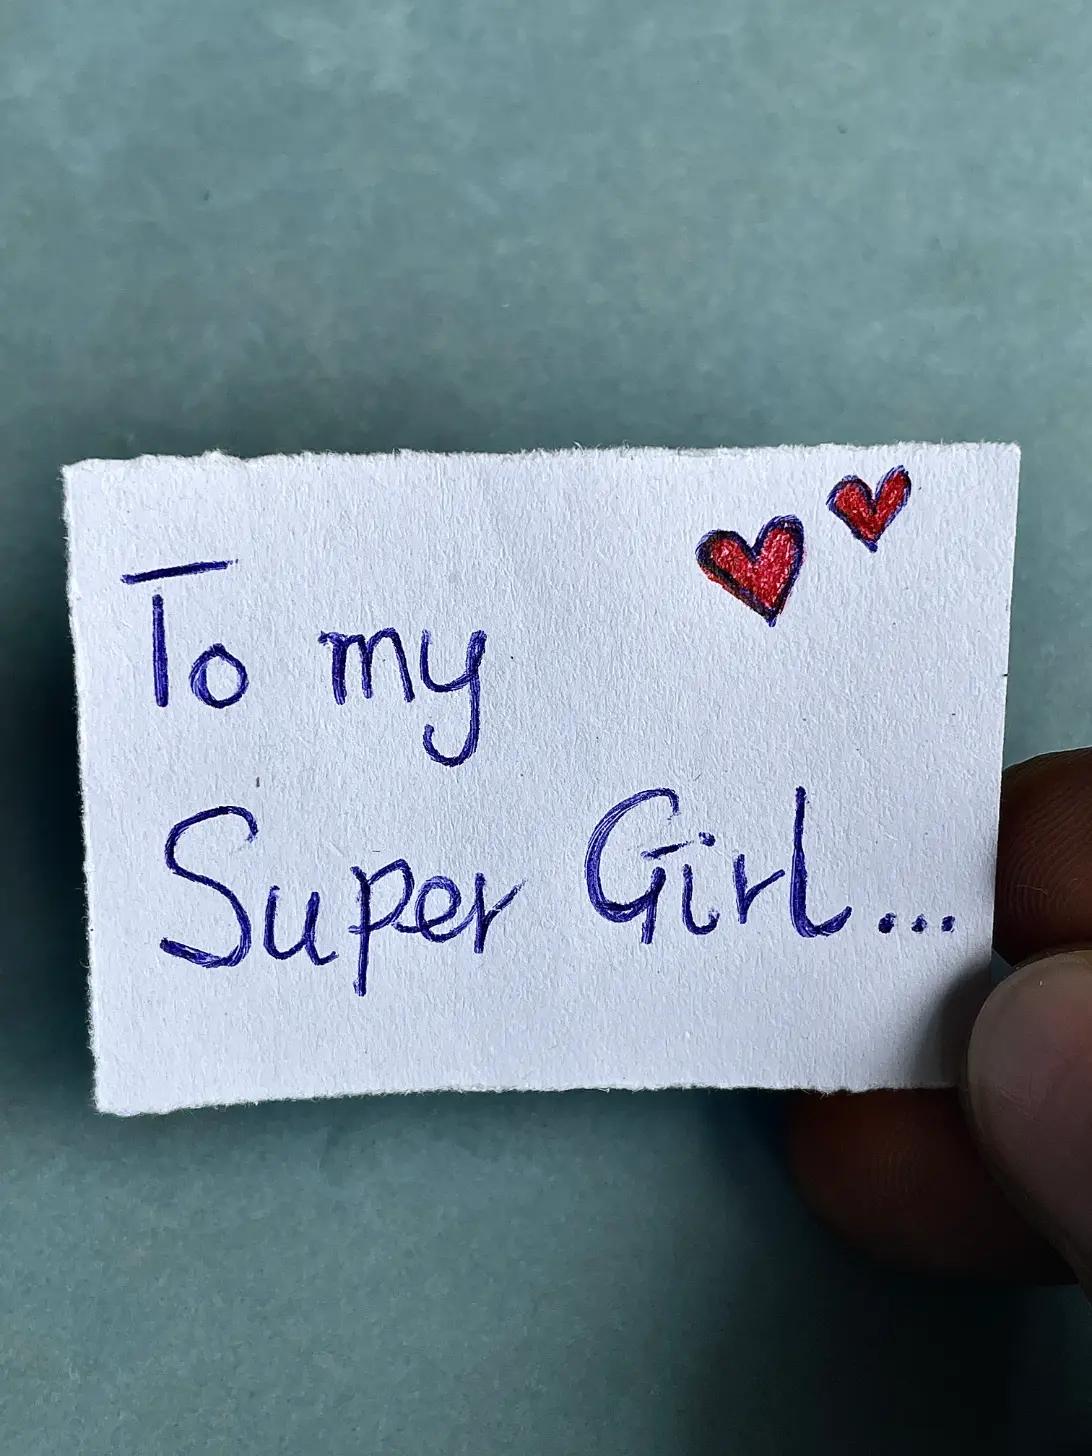 To my
Super Girl...